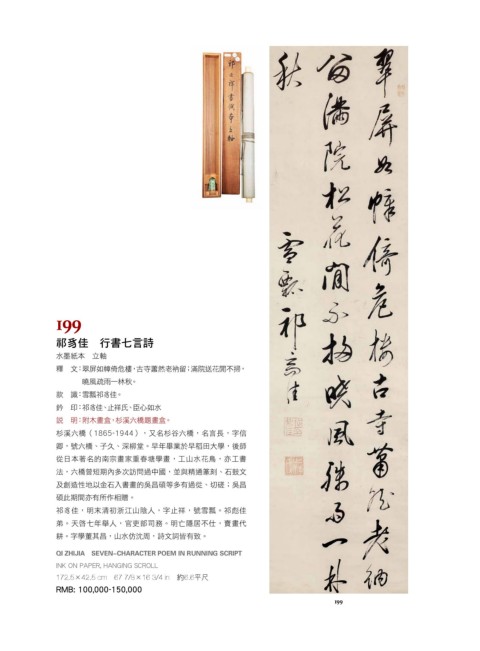 翠屏如幛倚危樓古寺蕭然老衲
留滿院松花閒不掃曉風疏雨一林
秋
雪瓢祁豸佳
199
祁豸佳 行書七言詩
水墨紙本 立軸
釋 文：翠屏如幛倚危樓，古寺蕭然老衲留；滿院送花閒不掃，
曉風疏雨一林秋。
款 識：雪瓢祁豸佳。
鈐 印：祁豸佳、止祥氏、臣心如水
説 明：附木畫盒，杉溪六橋題畫盒。
杉溪六橋（1865-1944），又名杉谷六橋，名言長，字信
卿，號六橋、子久、深柳堂。早年畢業於早稻田大學，後師
從日本著名的南宗畫家重春塘學畫，工山水花鳥，亦工書
法。六橋曾短期內多次訪問過中國，並與精通篆刻、石鼓文
及創造性地以金石入書畫的吳昌碩等多有過從、切磋；吳昌
碩此期間亦有所作相贈。
祁豸佳，明末清初浙江山陰人，字止祥，號雪瓢。祁彪佳
弟。天啓七年舉人，官吏部司務。明亡隱居不仕，賣畫代
耕。字學董其昌，山水仿沈周，詩文詞皆有致。
QI ZHIJIA SEVEN-CHARACTER POEM IN RUNNING SCRIPT
INK ON PAPER, HANGING SCROLL
172.5×42.5 cm 67 7/8×16 3/4 in 約6.6平尺
RMB: 100,000-150,000
199